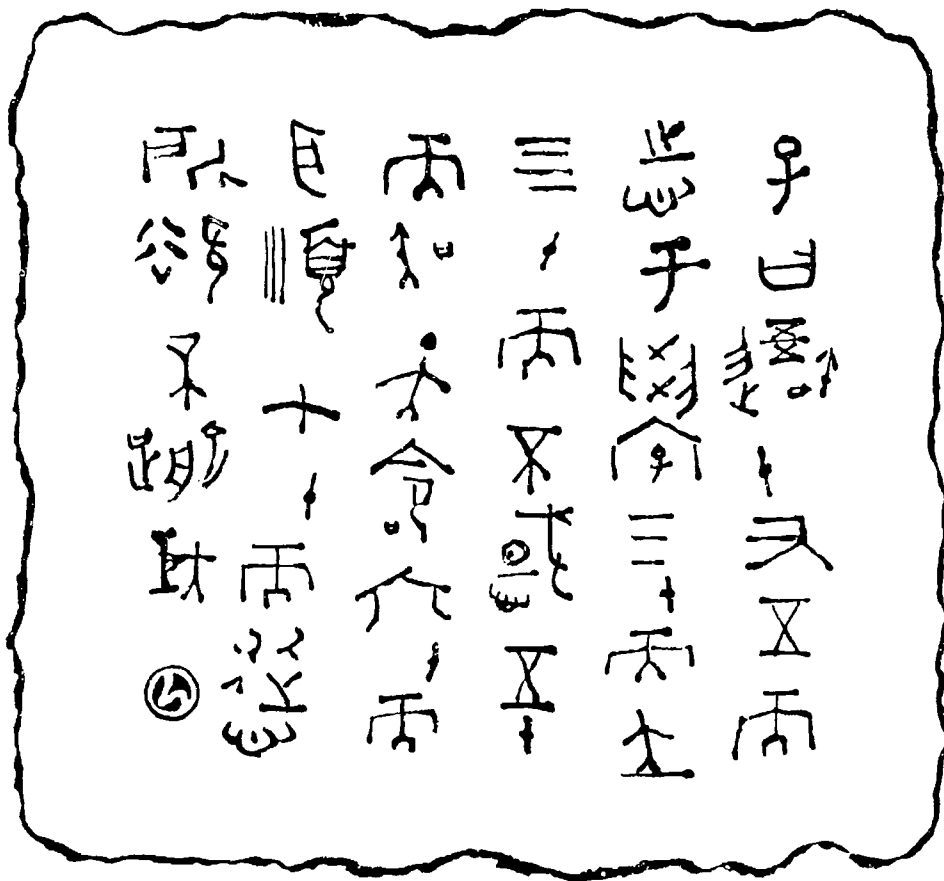 子曰吾十又五而
志于學三十而立
亖十而不惑五十
而知天命六十而
耳順七十而從心
所欲不踰矩